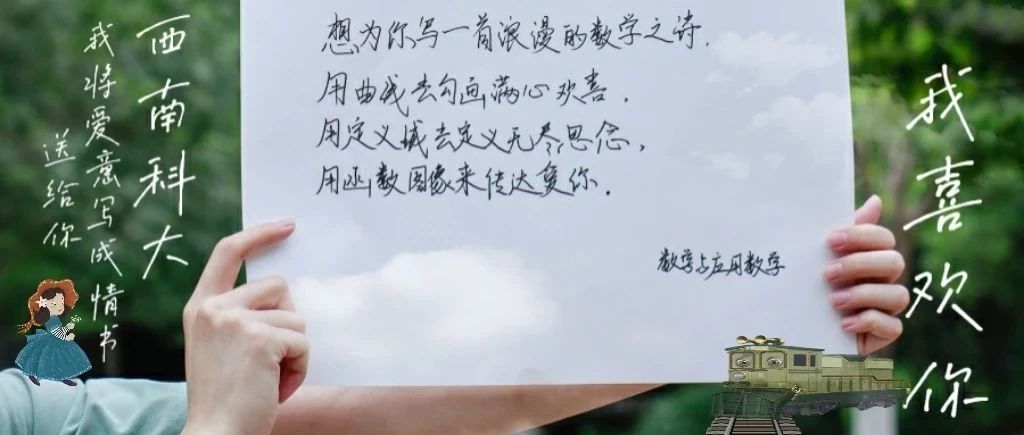 西南科大
我将爱意写成情书
送给你
想为你写一首浪漫的数学之诗.
用曲线去勾画满心欢喜.
用定义域去定义无尽思念,
用函数图象来传达爱你.
数学与应用数学
我喜欢你